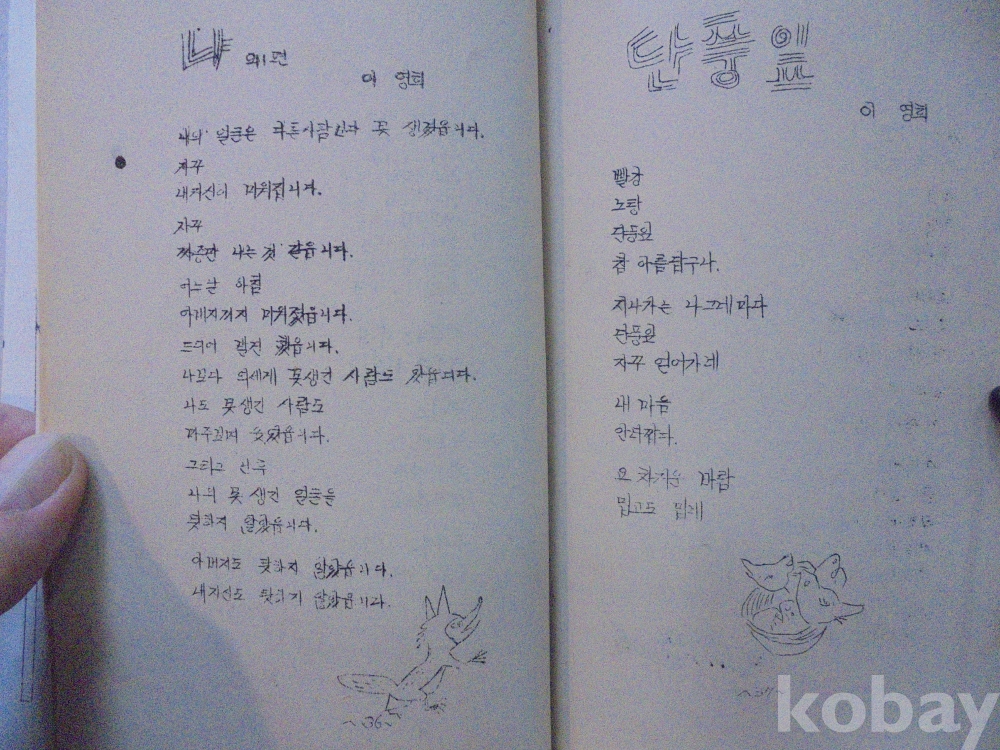 나 외1편
이 영희
내의 얼굴은 다른사람보다 못 생겼읍니다.
자꾸
내자신이 미워집니다.
자꾸
짜증만 나는것 같읍니다.
어느날 아침
아버지까지 미워졌읍니다.
드디어 발견 했읍니다.
나보다 더세게 못생긴 사람도 있읍니다.
나도 못생긴 사람도
마주보며 웃었읍니다.
그리고 난후
나의 못 생긴 얼굴을
탓하지 않았읍니다.
아버지도 탓하지 않았읍니다.
내자신도 탓하지 않았읍니다.
~36~
단풍잎
이 영희
빨강
노랑
단풍잎
참 아름답구나.
지나가는 나그네마다
단풍잎
자꾸 얻어가네
내 마음
안타깝다.
요 차거운 바람
밉고도 밉네
~37~
kobay